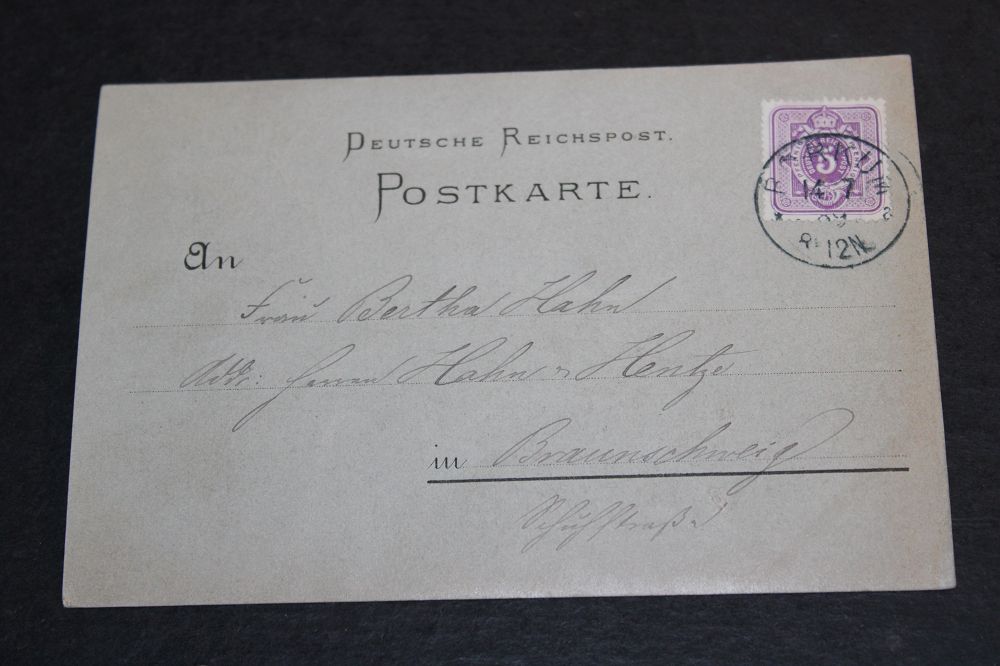 DEUTSCHE REICHSPOST.
POSTKARTE.
5
14 7
89
12N
a
An
Frau Bertha Hahn
Addr: Herren Hahn & Hentze
in Braunschweig
Schuhstraße